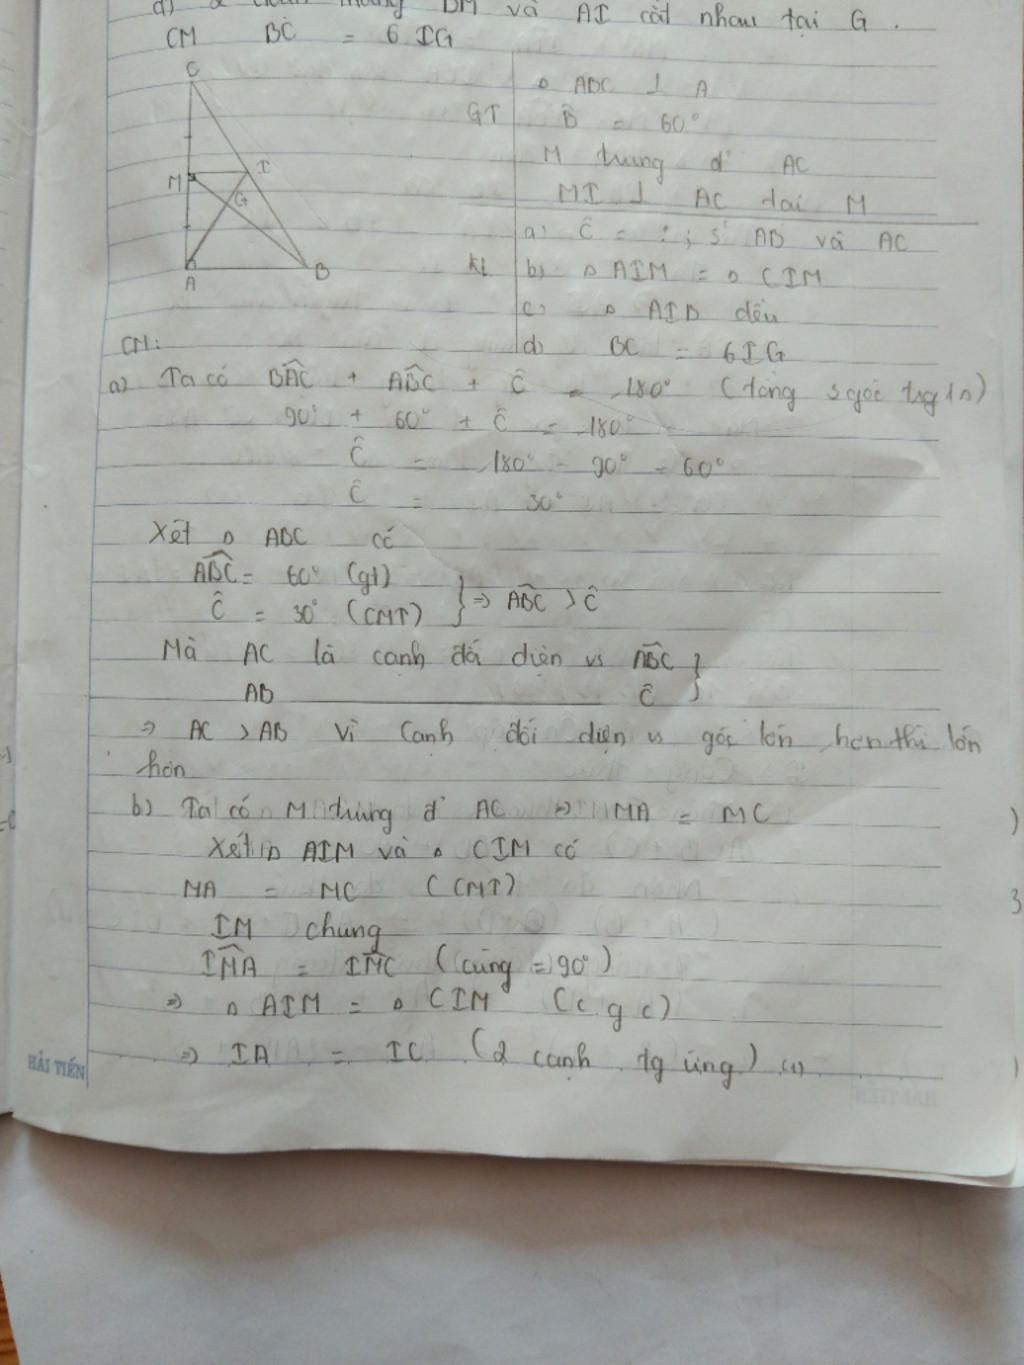 d) 2 đoạn thẳng BM và AI cắt nhau tại G.
CM BC = 6 IG
C
M
I
G
A
B
GT
△ ABC ⊥ A
B̂ = 60°
M trung đ' AC
MI ⊥ AC tại M
KL
a) Ĉ = ? ; s² AB và AC
b) △ AIM = △ CIM
c) △ AIB đều
d) BC = 6IG
CM:
a) Ta có BÂC + AB̂C + Ĉ = 180° (tổng 3 góc trg 1△)
90° + 60° + Ĉ = 180°
Ĉ = 180° - 90° - 60°
Ĉ = 30°
Xét △ ABC có
AB̂C = 60° (gt)
Ĉ = 30° (CMT) } ⇒ AB̂C > Ĉ
Mà AC là cạnh đối diện vs AB̂C }
AB ——— Ĉ
⇒ AC > AB vì cạnh đối diện vs góc lớn hơn thì lớn
hơn
b) Ta có M trung đ' AC ⇒ MA = MC
Xét △ AIM và △ CIM có
MA = MC (CMT)
IM chung
IM̂A = IM̂C (cùng = 90°)
⇒ △ AIM = △ CIM (c g c)
⇒ IA = IC (2 cạnh tg ứng) (1)
HẢI TIẾN